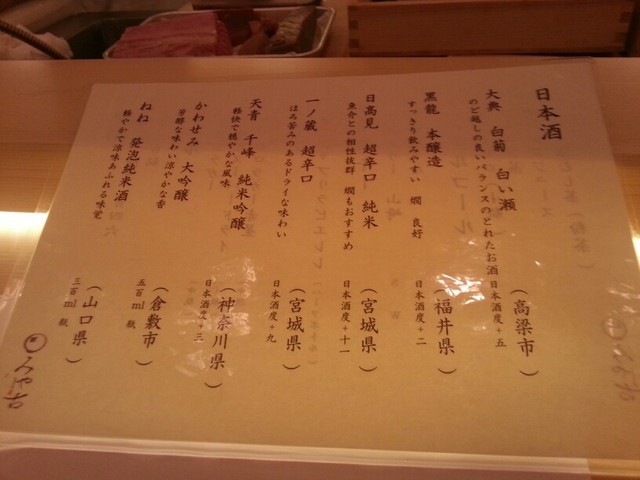 日本酒
大典 白菊 白い瀬 （高梁市）
のど越しの良いバランスのとれたお酒 日本酒度＋五
黒龍 本醸造 （福井県）
すっきり飲みやすい 燗 良好 日本酒度＋二
日高見 超辛口 純米 （宮城県）
魚介との相性抜群 燗もおすすめ 日本酒度＋十一
一ノ蔵 超辛口 （宮城県）
ほろ苦みのあるドライな味わい 日本酒度＋九
天青 千峰 純米吟醸 （神奈川県）
軽快で穏やかな風味 日本酒度＋三
かわせみ 大吟醸 （倉敷市）
芳醇な味わい涼やかな香 五百ml 瓶
ねね 発泡純米酒 （山口県）
軽やかで涼味あふれる味覚 三百ml 瓶
みや古